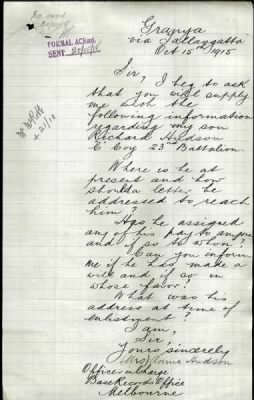 Granya
via Tallangatta
Oct 15th 1915
FORMAL ACKmt.
SENT
Sir,
I beg to ask
that you will supply
me with the
following information
regarding my son
Richard Hudson
C Coy 23rd Battalion.
Where is he at
present and how
should letter be
addressed to reach
him?
Has he assigned
any of his pay to anyone
and if so to whom?
Can you inform
me if he has made a
will and if so in
whose favor?
What was his
address at time of
enlistment?
I am,
Sir,
Yours sincerely
(Mrs) Annie Hudson
Officer in Charge
Base Records Office
Melbourne